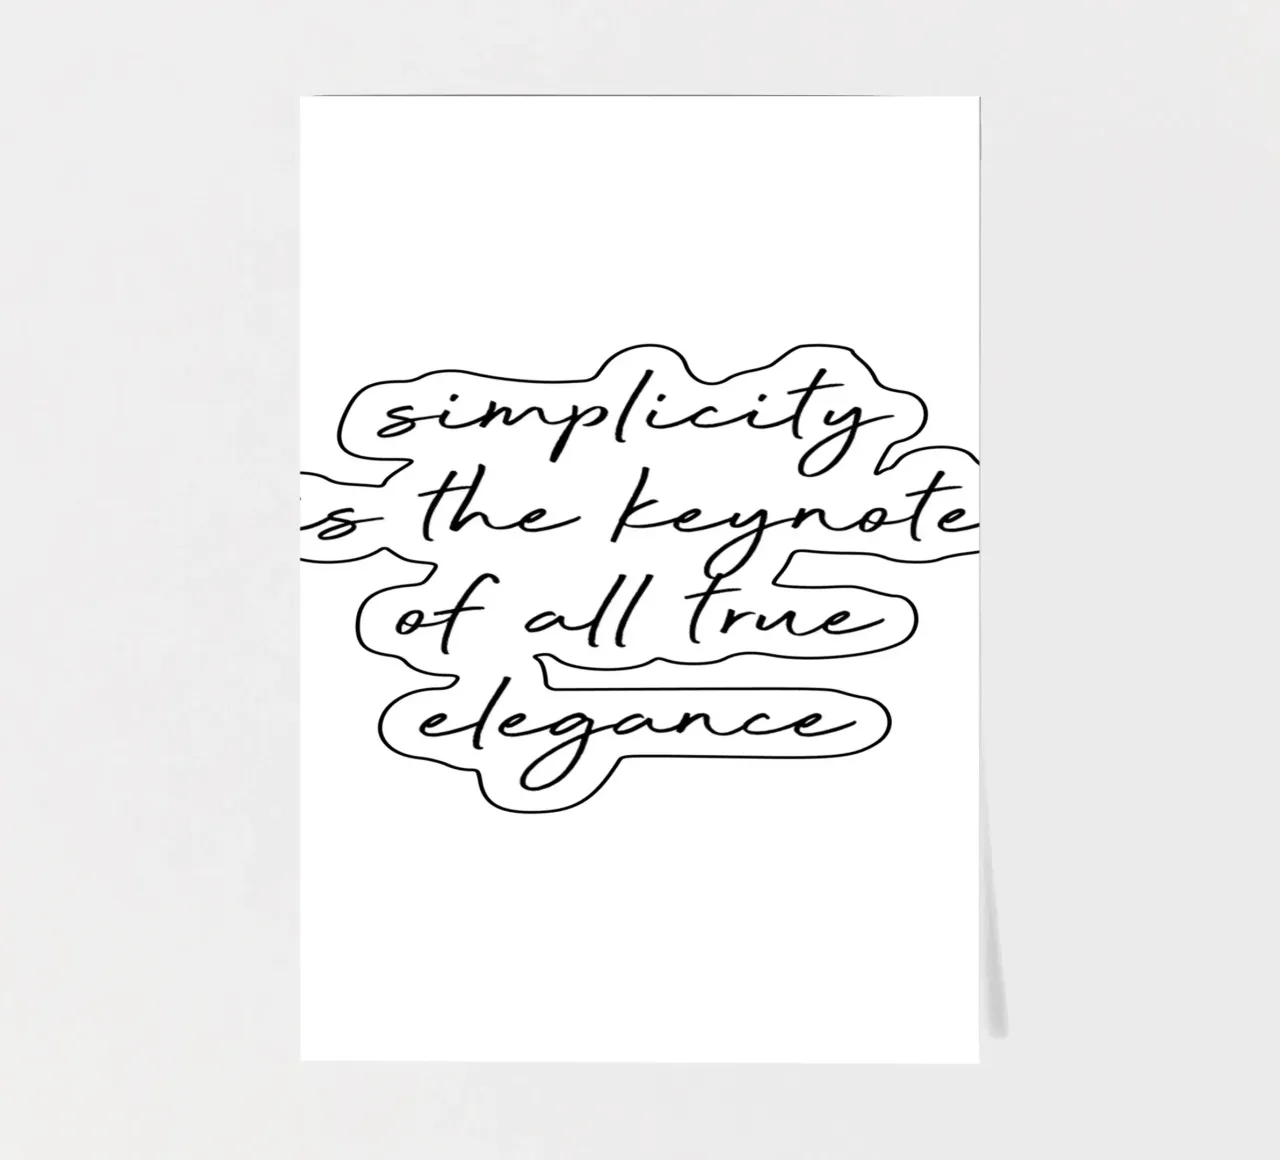 simplicity
is the keynote
of all true
elegance